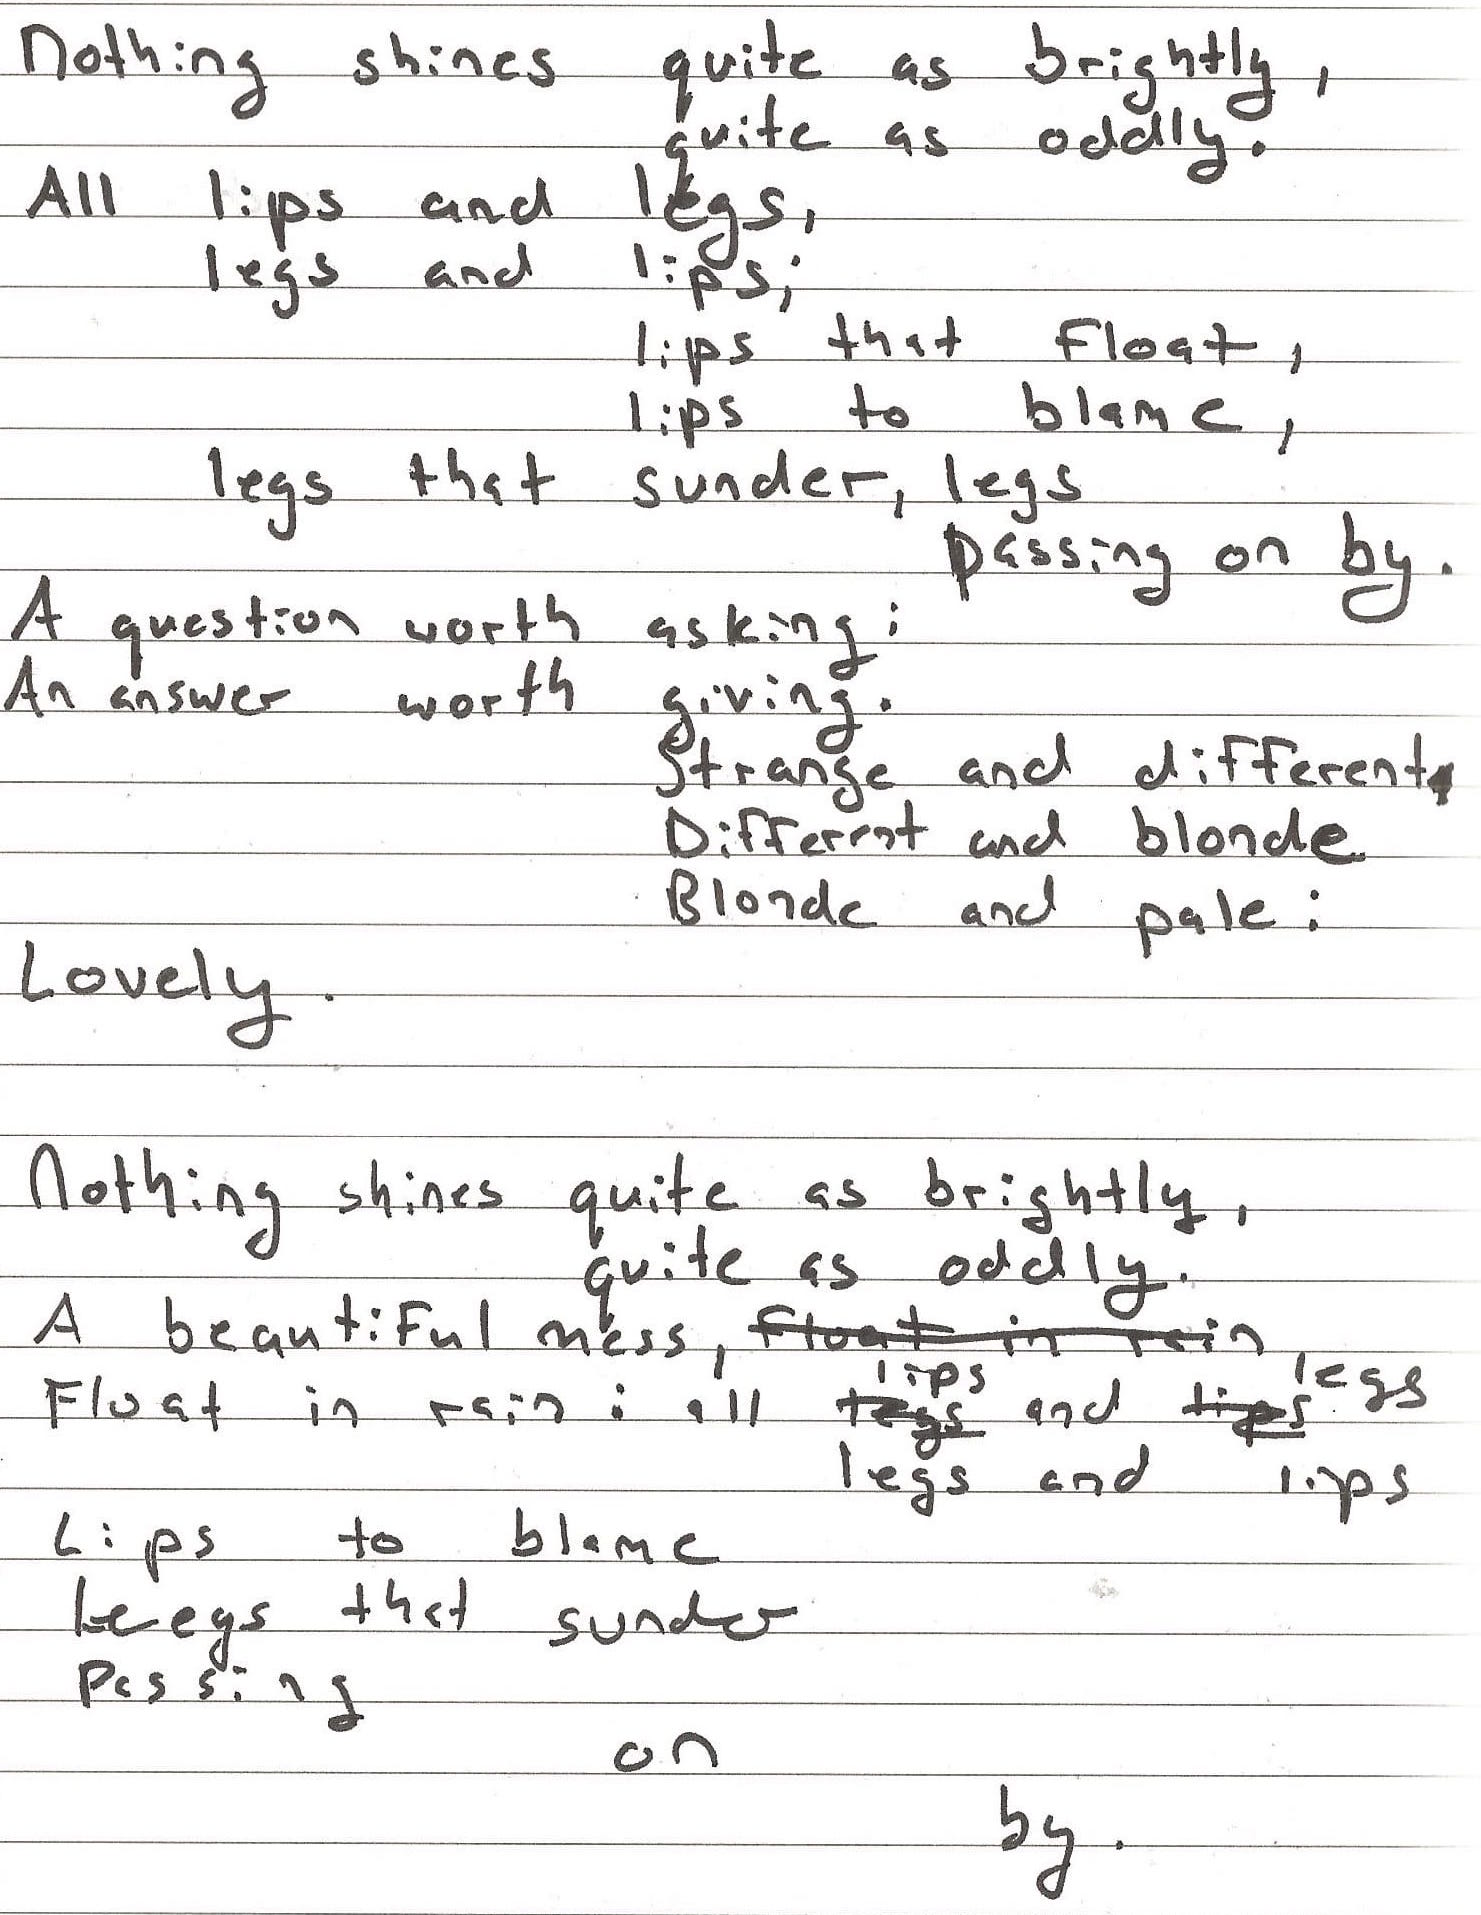 Nothing shines quite as brightly,
quite as oddly.
All lips and legs,
legs and lips;
lips that float,
lips to blame,
legs that sunder, legs
passing on by.
A question worth asking;
An answer worth giving.
Strange and different,
Different and blonde
Blonde and pale:
Lovely.
Nothing shines quite as brightly,
quite as oddly.
A beautiful mess, float in rain
Float in rain : all legs and lips
lips legs
legs and lips
Lips to blame
Legs that sunder
Passing
on
by.